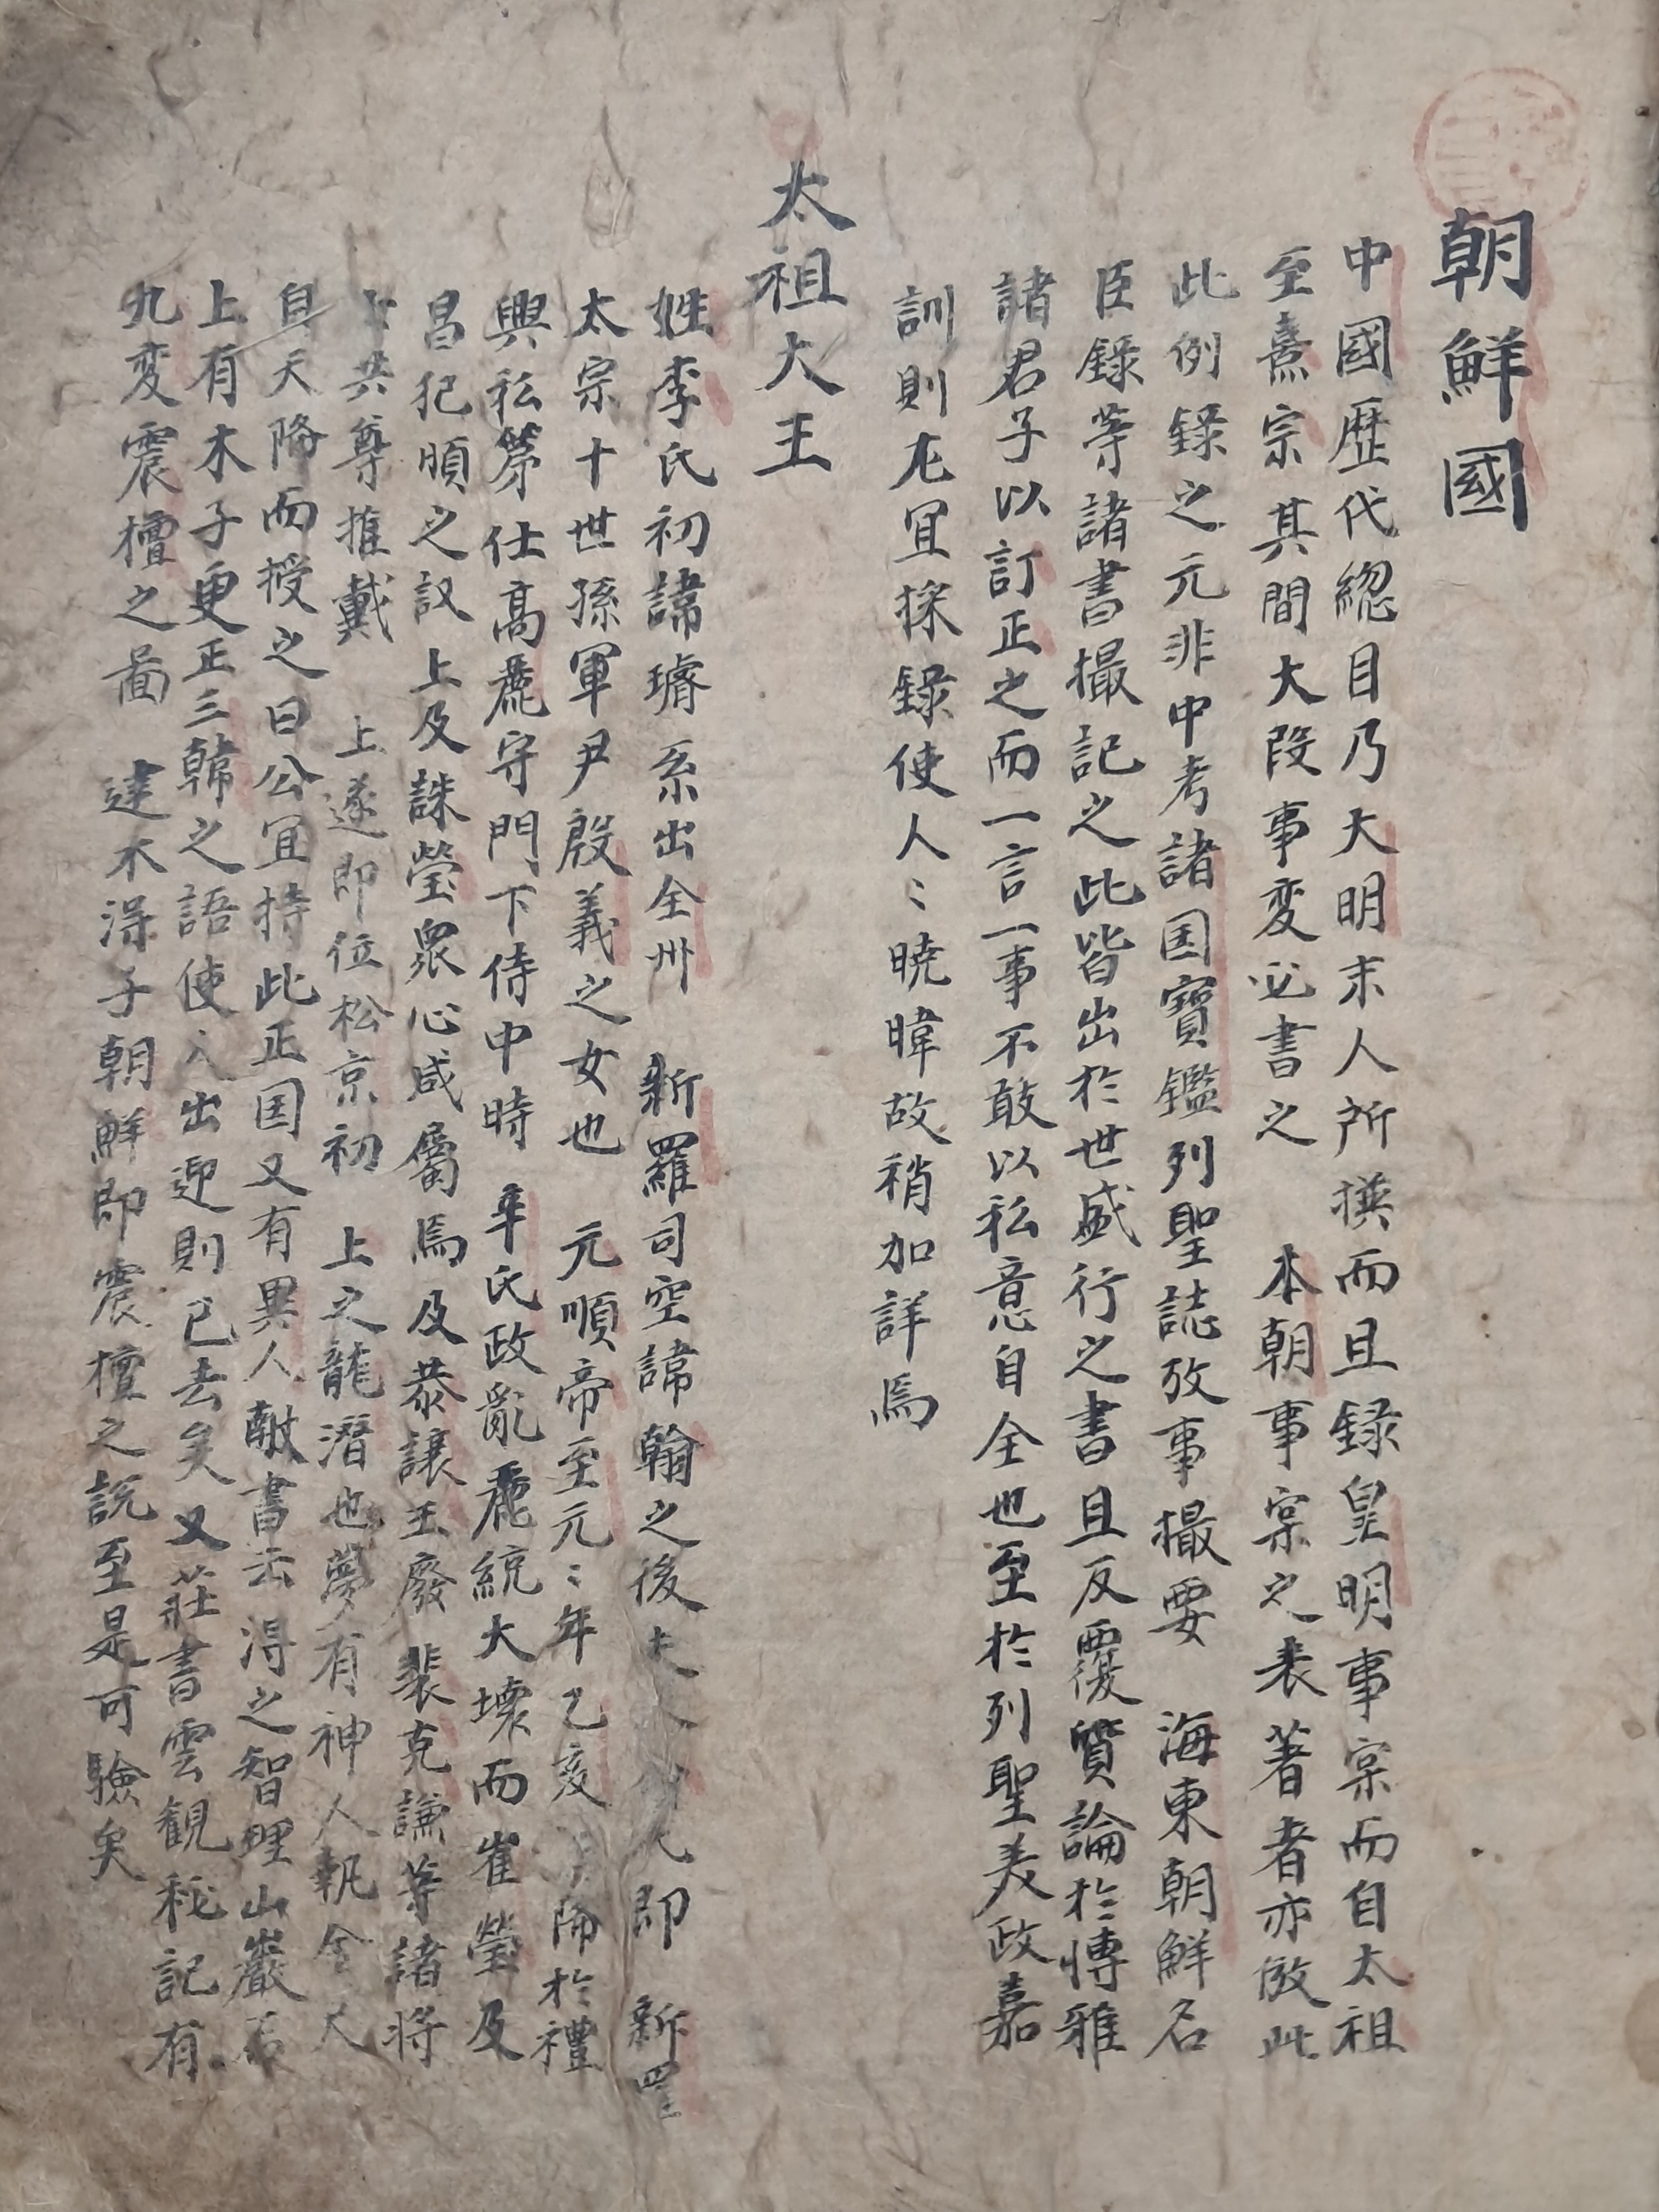 朝鮮國
中國歷代総目乃大明末人所撰而且録皇明事宲而自太祖
至熹宗其間大段事変必書之 本朝事宲之表著者亦倣此
此例録之元非中考諸国寶鑑列聖誌攷事撮要 海東朝鮮名
臣錄等諸書撮記之此皆出於世盛行之書且反覆質論於愽雅
諸君子以訂正之而一言一事不敢以私意自全也至於列聖美政嘉
訓則尤冝採録使人〻暁暐故稍加詳焉
太祖大王
姓李氏初諱璿系出全州 新羅司空諱翰之後夫人 即 新羅
太宗十世孫軍尹殷義之女也 元順帝至元〻年乙亥 降於禮
興私第仕高麗守門下侍中時 辛氏政亂麗統大壊而崔瑩及
昌犯順之议 上及誅瑩衆心咸屬焉及恭讓王廢裴克謙等諸将
士共尊推戴 上遂即位松京初 上之龍潛也夢有神人執金尺
自天降而授之曰公冝持此正国又有異人献書云淂之智理山巖石
上有木子更正三韓之語使人出迎則已去矣又莊書雲観秘記有
九変震檀之啚 建木淂子朝鮮即震檀之説至是可驗矣